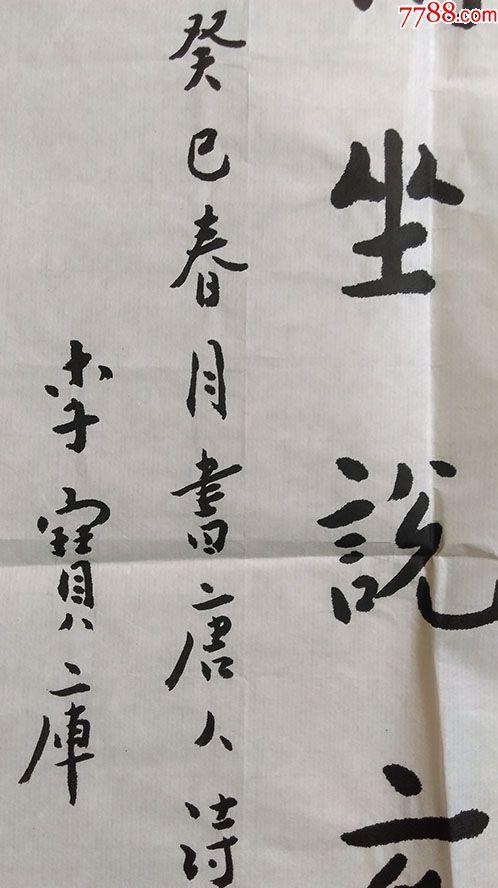 7788.com
坐說玄
癸巳春月書唐人詩
李寶庫